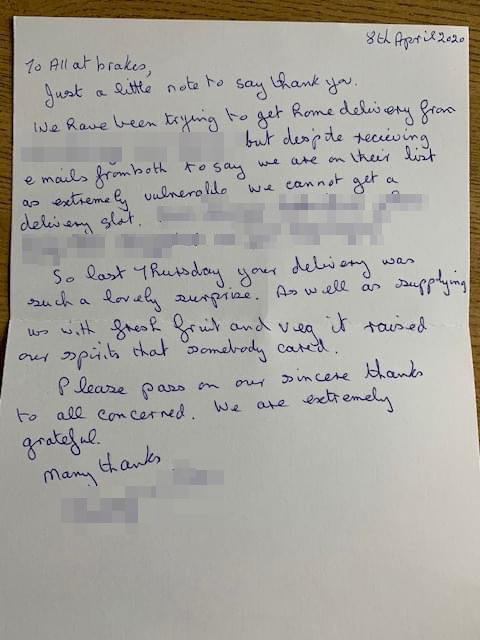 8th April 2020
To All at brakes,
Just a little note to say thank you.
We have been trying to get home delivery from
but despite recieving
emails from both to say we are on their list
as extremely vulnerable we cannot get a
delivery slot.
So last Thursday your delivery was
such a lovely surprise. As well as supplying
us with fresh fruit and veg it raised
our spirits that somebody cared.
Please pass on our sincere thanks
to all concerned. We are extremely
grateful.
Many thanks